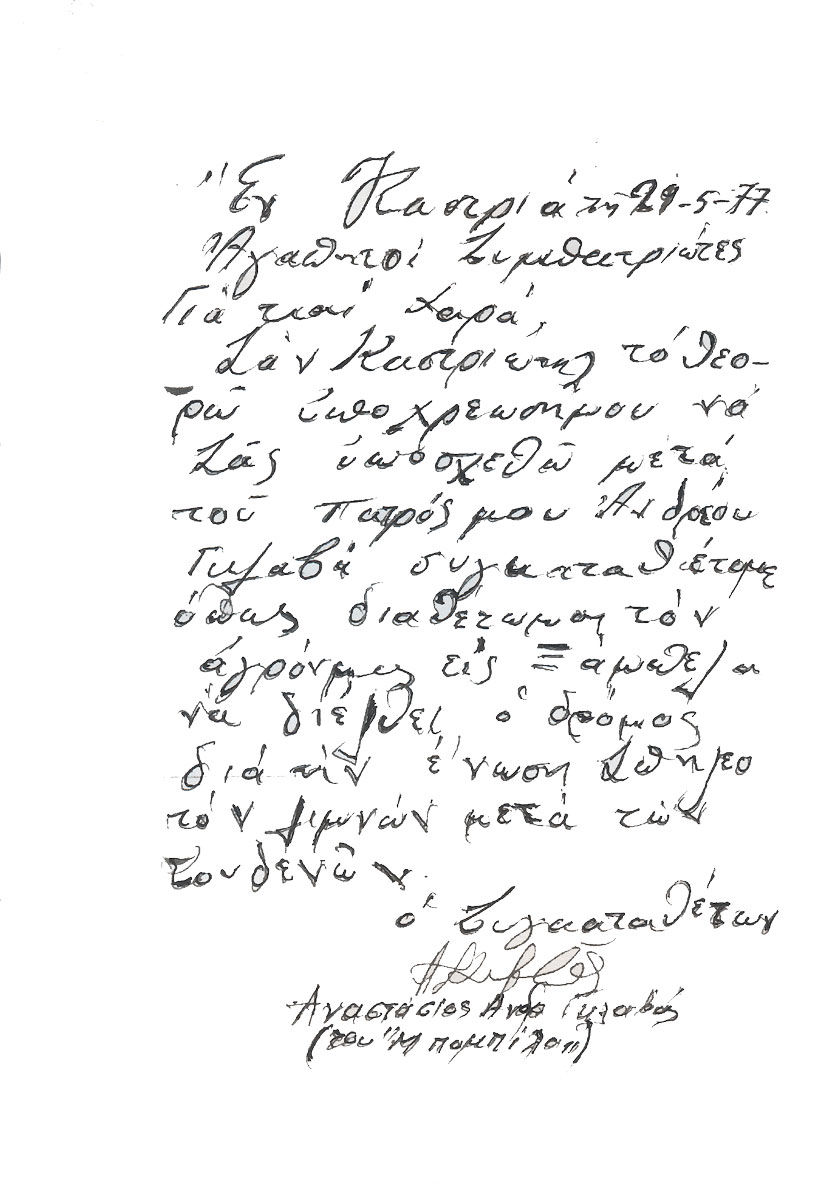 Ἐν Καστριά τῆ 29-5-77
Ἀγαπητοί Συμπατριώτες
Γιά καί χαρά,
Σάν Καστριώτης τό θεο-
ρῶ ὑποχρεωσήμου νά
Σᾶς ὑποσχεθῶ μετά
τοῦ πατρός μου Ἀνδρέου
Γκλαβά συγκαταθέτομε
ὅπως διαθέτωμεν τόν
ἀγρόνμας εἰς Ξάμπελα
νά διέλθει ὁ δρόμος
διά τήν ἕνωση Σπηλεο
τόν λιμνών μετά των
Σουδενῶν.
ὁ Συγκαταθέτων
Αναστάσιος Ανδρ Γκλαβάς
(του "Μπαμπίλα")